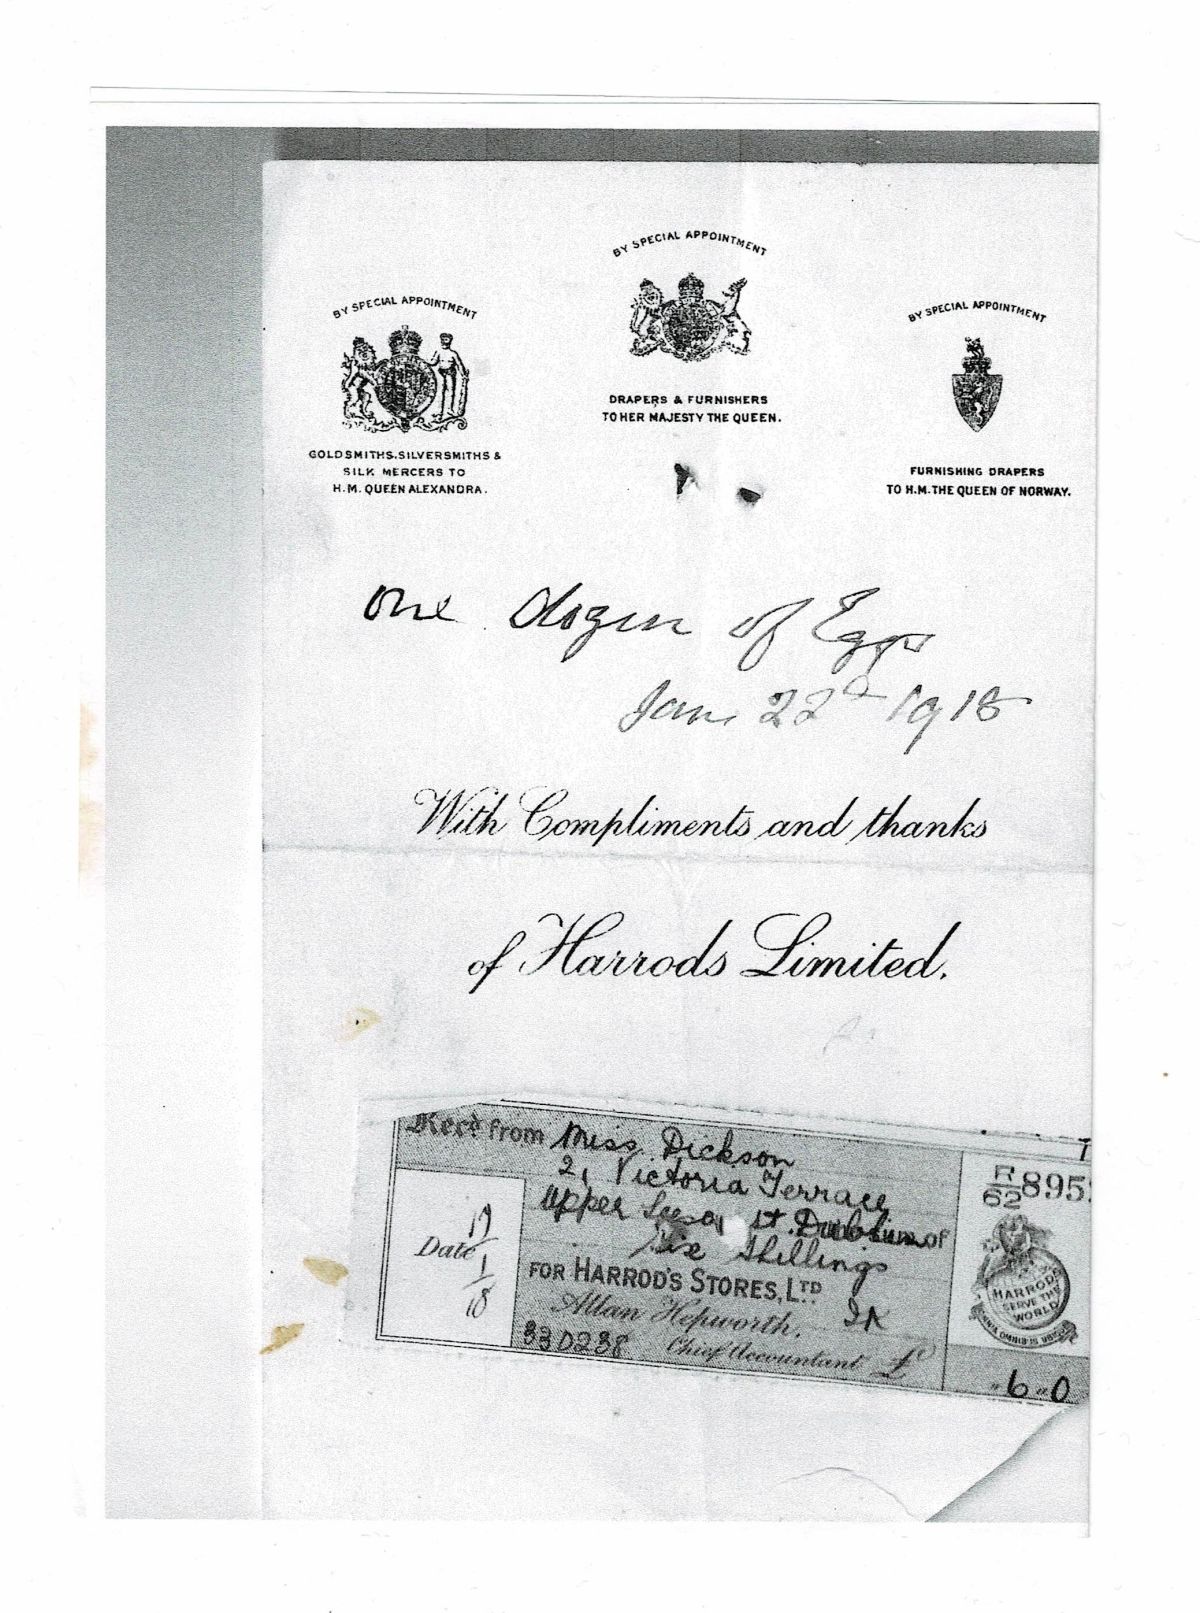 BY SPECIAL APPOINTMENT
GOLDSMITHS, SILVERSMITHS &
SILK MERCERS TO
H.M. QUEEN ALEXANDRA.
BY SPECIAL APPOINTMENT
DRAPERS & FURNISHERS
TO HER MAJESTY THE QUEEN.
BY SPECIAL APPOINTMENT
FURNISHING DRAPERS
TO H.M. THE QUEEN OF NORWAY.
One dozen of Eggs
Jan. 22d 1918
With Compliments and thanks
of Harrods Limited.
Recd from Miss Dickson
2, Victoria Terrace
Upper Leeson St. Dublin of
Six Shillings
FOR HARROD'S STORES, LTD
Allan Hepworth.
Chief Accountant £
330238
Date 19/1/18
R/62 895
HARRODS
SERVE THE
WORLD
OMNIA OMNIBUS UBIQUE
"6"0